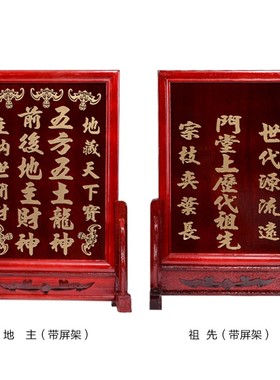 地藏天下寶
五方五土龍神
前後地主財神
主納世間財
世代源流遠
門堂上歷代祖先
宗枝奕葉長
地 主（带屏架）
祖 先（带屏架）